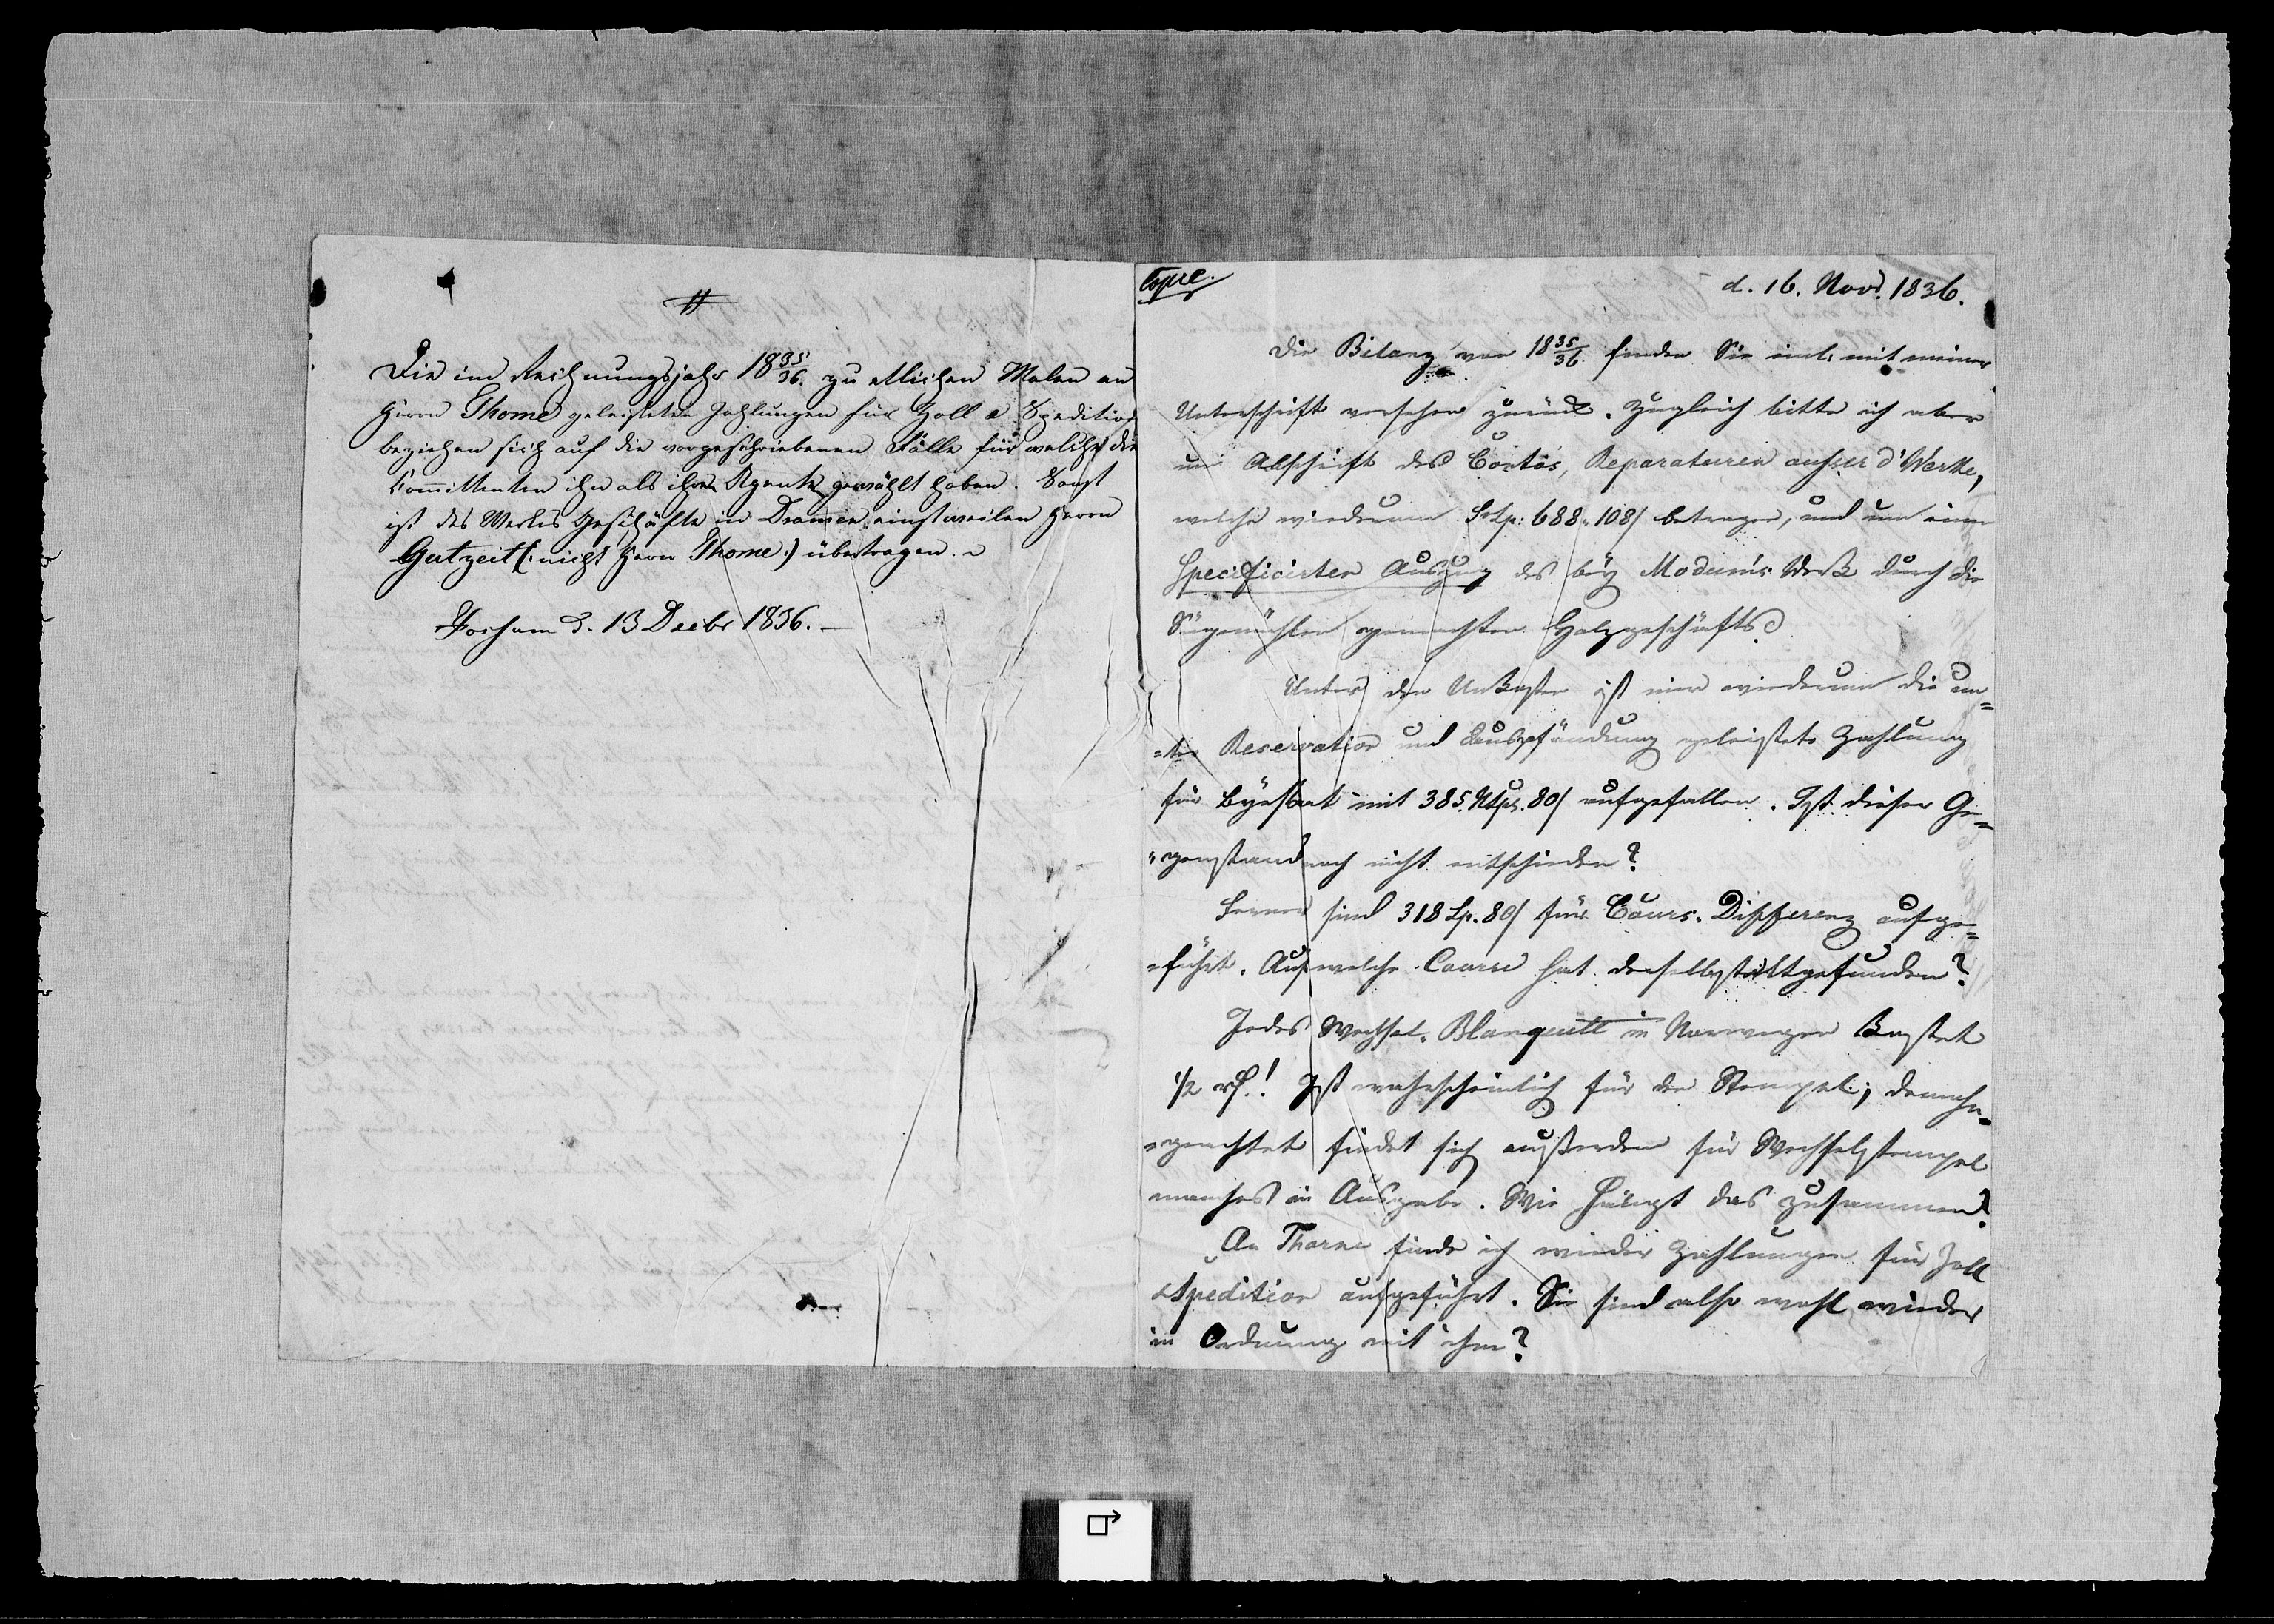 #
Die im Rechnungsjahr 18 35/36. zu etlichen Malen an
Herrn Thome geleisteten Zahlungen für Zoll & Spedition
beziehen sich auf die vorgeschriebenen Fälle für welche die
Committenten ihn als ihren Agenten gewählt haben. Sonst
ist des Werkes Geschäfte in Dramen einstweilen Herrn
Gutzeit (: nicht Herrn Thome :) übertragen.
Fossum d. 13 Decbr 1836.
Copie.
d. 16. Novr. 1836.
Die Bilanz von 18 35/36 finden Sie einl. mit meiner
Unterschrift versehen zurück. Zugleich bitte ich aber
um Abschrift des Contos, Reparaturen ausser d' Werke,
welche wiederum Sp: 688. 108/ betragen, und um einen
specificirten Auszug des bey Modums Werk durch die
Sägemühlen gemachten Holzgeschäfts.
Unter den Unkosten ist mir wiederum die un=
=ter Reservation und Auspfändung geleistete Zahlung
für mit 385. 80/ aufgefallen. Ist dieser Ge=
=genstand noch nicht entschieden?
Ferner sind 318 Sp. 80/ für Cours. Differenz aufge=
=führt. Auf welche Course hat dieselbe stattgefunden?
Jedes Wechsel-Blanquett in Norwegen kostet
1/2 ! Ist wahrscheinlich für den Stempel; demohn=
=geachtet findet sich ausserdem für Wechselstempel
manches in Ausgabe. Wie hängt das zusammen?
An Thorne finde ich wieder Zahlungen für Zoll
& Spedition aufgeführt. Sie sind also wohl wieder
in Ordnung mit ihm?